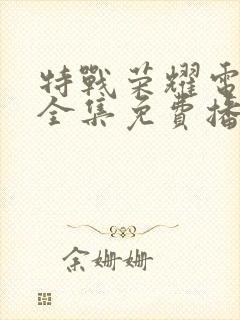 特戰荣耀電
全集免費播
余姗姗